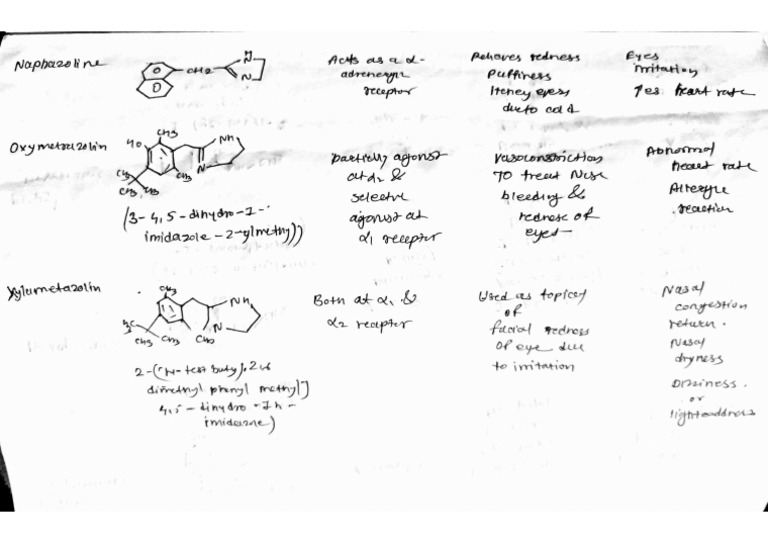 Naphazoline
CH2
N
H
N
Acts as a α-
adrenergic
receptor
Removes redness
Puffiness
Itchey eyess
due to cold
Eyes
irritation
Yes heart rate
Oxymetazolin
CH3
HO
NH
N
CH3
CH3
CH3
CH3
(3-4,5-dihydro-1-
imidazole-2-ylmethy))
partially agonst
at α2 &
selective
agonist at
α1 receptor
Vasoconstriction
TO treat Nose
bleeding &
redness of
eyes-
Abnormal
heart rate
Allergic
reaction
Xylometazolin
CH3
NH
N
H3C
CH3
CH3
CH3
2-(4-tert buty).2,6
dimetnyl phenyl methyl]
4,5-dihydro-1h-
imidazone)
Both at α1 &
α2 receptor
Used as topicaly
of
facial redness
of eye due
to irritation
Nasal
congestion
return.
Nasal
dryness
Dizziness.
or
lightheaddness